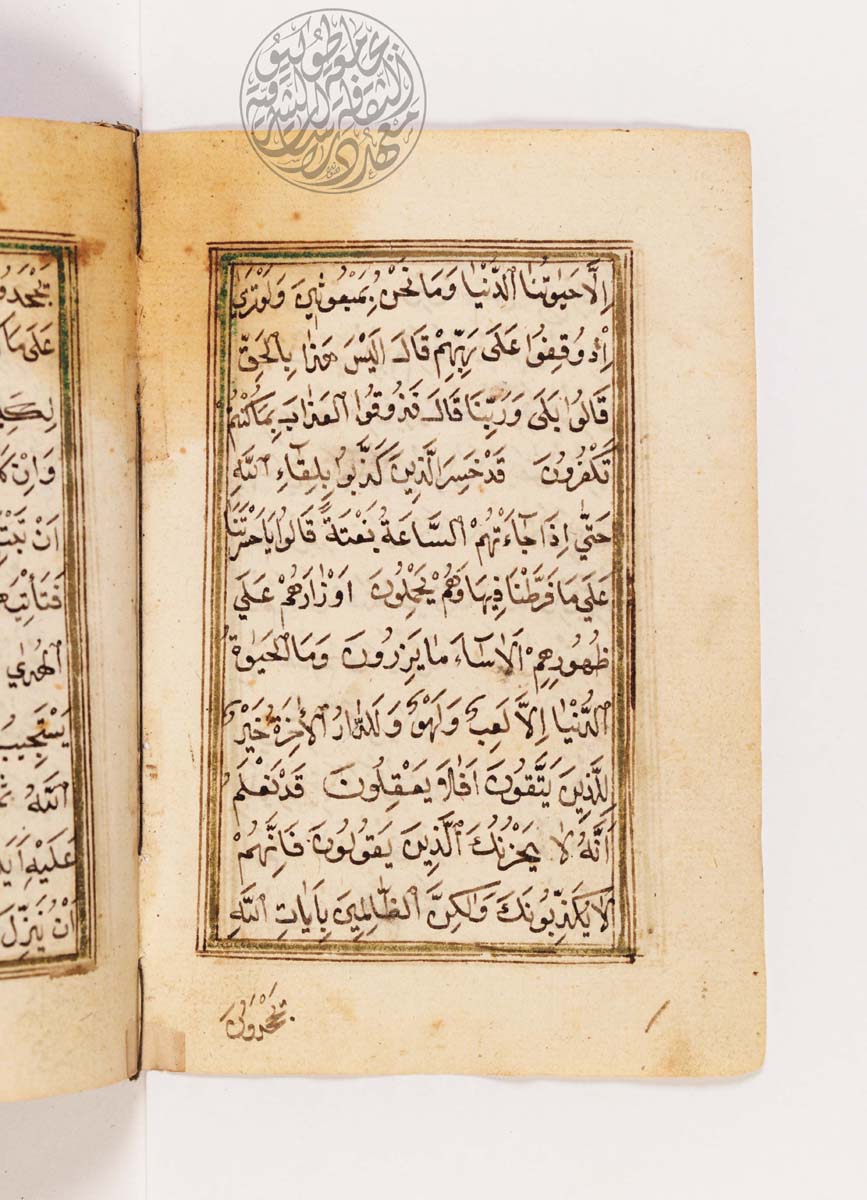 اِلَّا حَيٰوتُنَا الدُّنْيَا وَمَا نَحْنُ بِمَبْعُوثٖينَ وَلَوْ تَرٰي
اِذْ وُقِفُوا عَلَى رَبِّهِمْ قَالَ اَلَيْسَ هٰذَا بِالْحَقِّ
قَالُوا بَلَى وَرَبِّنَا قَالَ فَذُوقُوا الْعَذَابَ بِمَا كُنْتُمْ
تَكْفُرُونَ قَدْ خَسِرَ الَّذِينَ كَذَّبُوا بِلِقَاءِ اللّٰهِ
حَتّٰي اِذَا جَاءَتْهُمُ السَّاعَةُ بَغْتَةً قَالُوا يَا حَسْرَتَنَا
عَلَي مَا فَرَّطْنَا فِيهَا وَهُمْ يَحْمِلُونَ اَوْزَارَهُمْ عَلَي
ظُهُورِهِمْ اَلَا سَاءَ مَا يَزِرُونَ وَمَا الْحَيٰوةُ
الدُّنْيَا اِلَّا لَعِبٌ وَلَهْوٌ وَلَلدَّارُ الْاٰخِرَةُ خَيْرٌ
لِلَّذِينَ يَتَّقُونَ اَفَلَا يَعْقِلُونَ قَدْ نَعْلَمُ
اَنَّهُ لَا يَحْزُنُكَ الَّذِينَ يَقُولُونَ فَاِنَّهُمْ
لَا يُكَذِّبُونَكَ وَلٰكِنَّ الظَّالِمِينَ بِاٰيَاتِ اللّٰهِ
يَجْحَدُونَ
عَلَى مَا
وَاِنْ كَا
فَتَأْتِيَهُ
الْهُدٰي
يَسْتَجِيبُ
اللّٰهُ
عَلَيْهِ اٰيَة
اَنْ يُنَزِّلَ